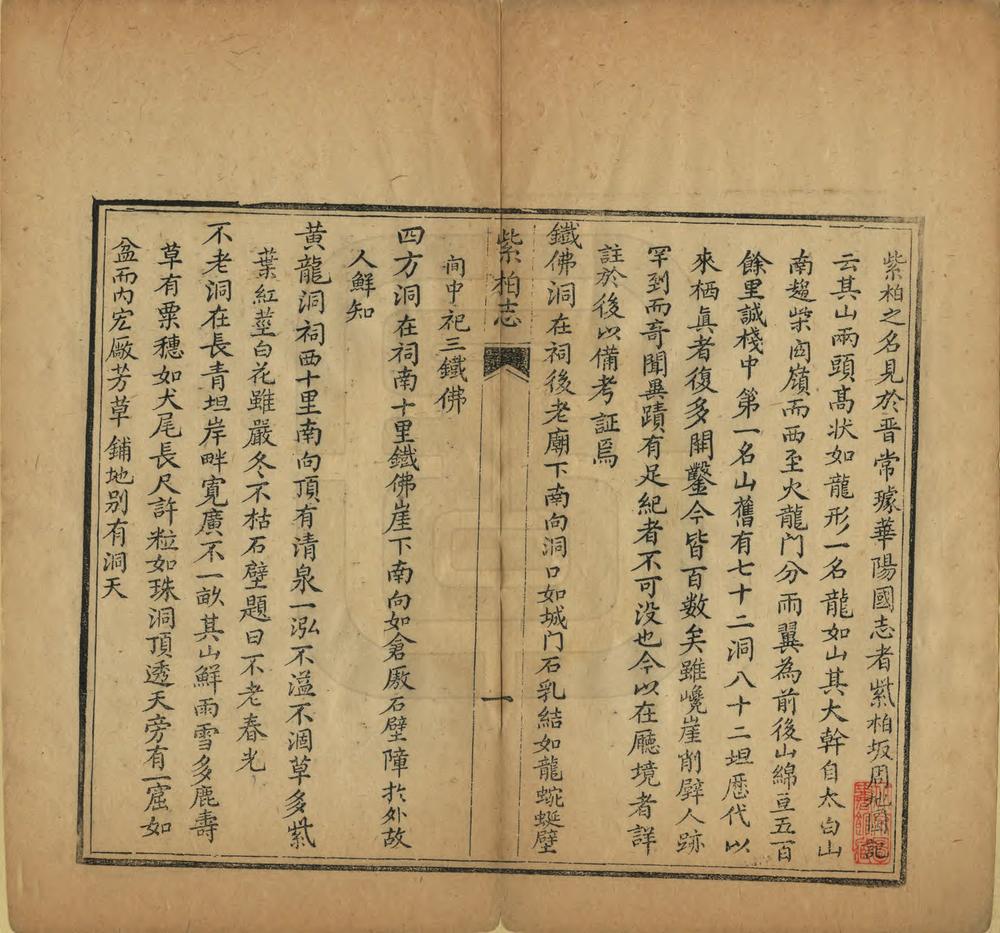 紫柏之名見於晋常璩華陽國志者紫柏坂周地圖記
云其山兩頭高状如龍形一名龍如山其大幹自太白山
南趨柴関嶺而西至火龍門分両翼為前後山綿亘五百
餘里誠棧中第一名山舊有七十二洞八十二坦歷代以
來栖真者復多開鑿今皆百數矣雖巉崖削壁人跡
罕到而奇聞異蹟有足紀者不可没也今以在廳境者詳
註於後以備考証焉
鐵佛洞在祠後老廟下南向洞口如城門石乳結如龍蜿蜒壁
紫柏志
一
间中祀三鐵佛
四方洞在祠南十里鐵佛崖下南向如倉厫石壁障扵外故
人鮮知
黄龍洞祠西十里南向頂有清泉一泓不溢不涸草多紫
葉紅莖白花雖嚴冬不枯石壁題曰不老春光
不老洞在長青坦岸畔寛廣不一畝其山鮮雨雪多鹿壽
草有粟穗如犬尾長尺許粒如珠洞頂透天旁有一窟如
盆而内宏厰芳草鋪地别有洞天